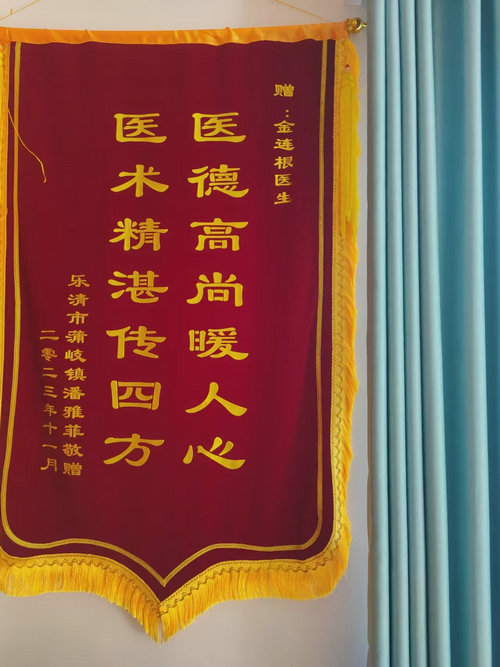 赠：金连根医生
医德高尚暖人心
医术精湛传四方
乐清市蒲岐镇潘雅菲敬赠
二零二三年十一月